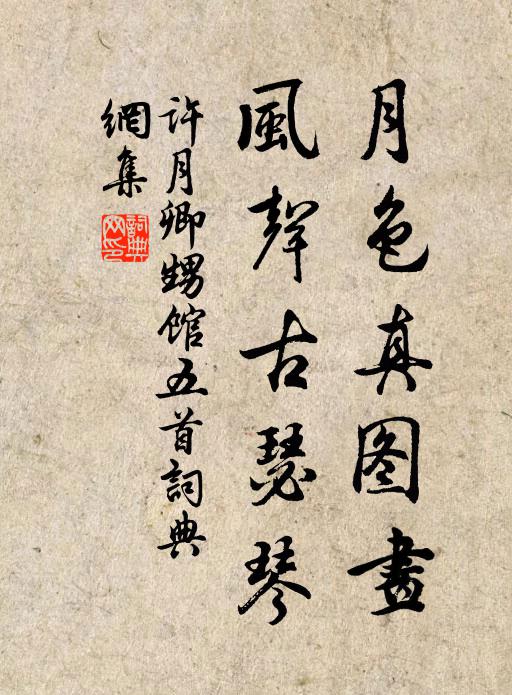 月色真图畫
風聲古瑟琴
許月卿甥館五首詞典
網集
詞典網印